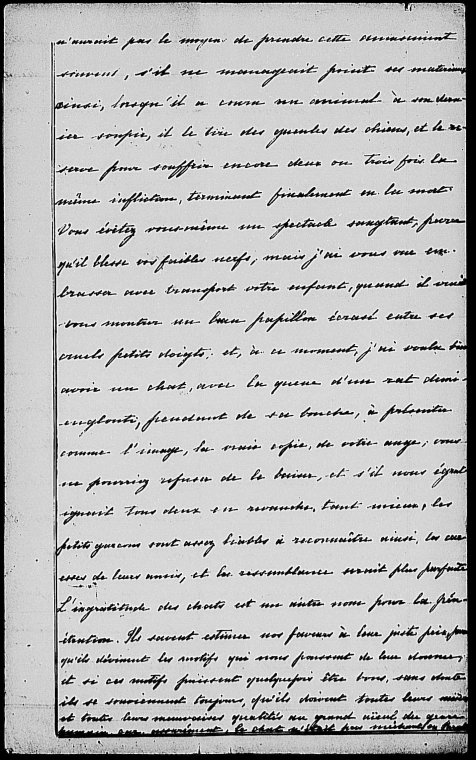 n'aurait pas le moyen de prendre cette amusement
souvent, s'il ne managerait point ses materiaux
ainsi, lorsqu'il a couru un animal à son dern-
ier soupir, il le tire des gueules des chiens, et le re-
serve pour souffrir encore deux ou trois fois la
même infliction, terminant finalement en la mort
Vous évitez vous-même un spectacle sanglant, parce
qu'il blesse vos faibles nerfs, mais j'ai vous vue em-
brasser avec transport votre enfant, quand il venait
vous montrer un beau papillon écrasé entre ses
cruels petits doigts; et, à ce moment, j'ai voulu bien
avoir un chat, avec la queue d'un rat demi-
englouti, pendant de sa bouche, à présenter
comme l'image, la vraie copie, de votre ange; vous
ne pourriez refuser de le baiser, et s'il nous égrat-
ignait tous deux en revanche, tant mieux, les
petits garçons sont assez liables à reconnaître ainsi, les car-
esses de leurs amis, et la ressemblance serait plus parfaite
L'ingratitude des chats est un autre nom pour la pén-
étration. Ils savent estimer nos faveurs à leur juste prix, par
qu'ils devinent les motifs qui nous poussent de leur donner,
et si ces motifs puissent quelquefois être bons, sans doute
ils se souviennent toujours, qu'ils doivent toutes leurs misères
et toutes leurs mauvaises qualités au grand aïeul du genre
humain car assurément, le chat n'était pas méchant en